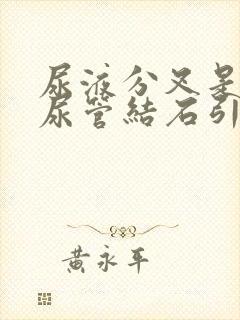 尿液分叉是
尿管結石引
黃永平